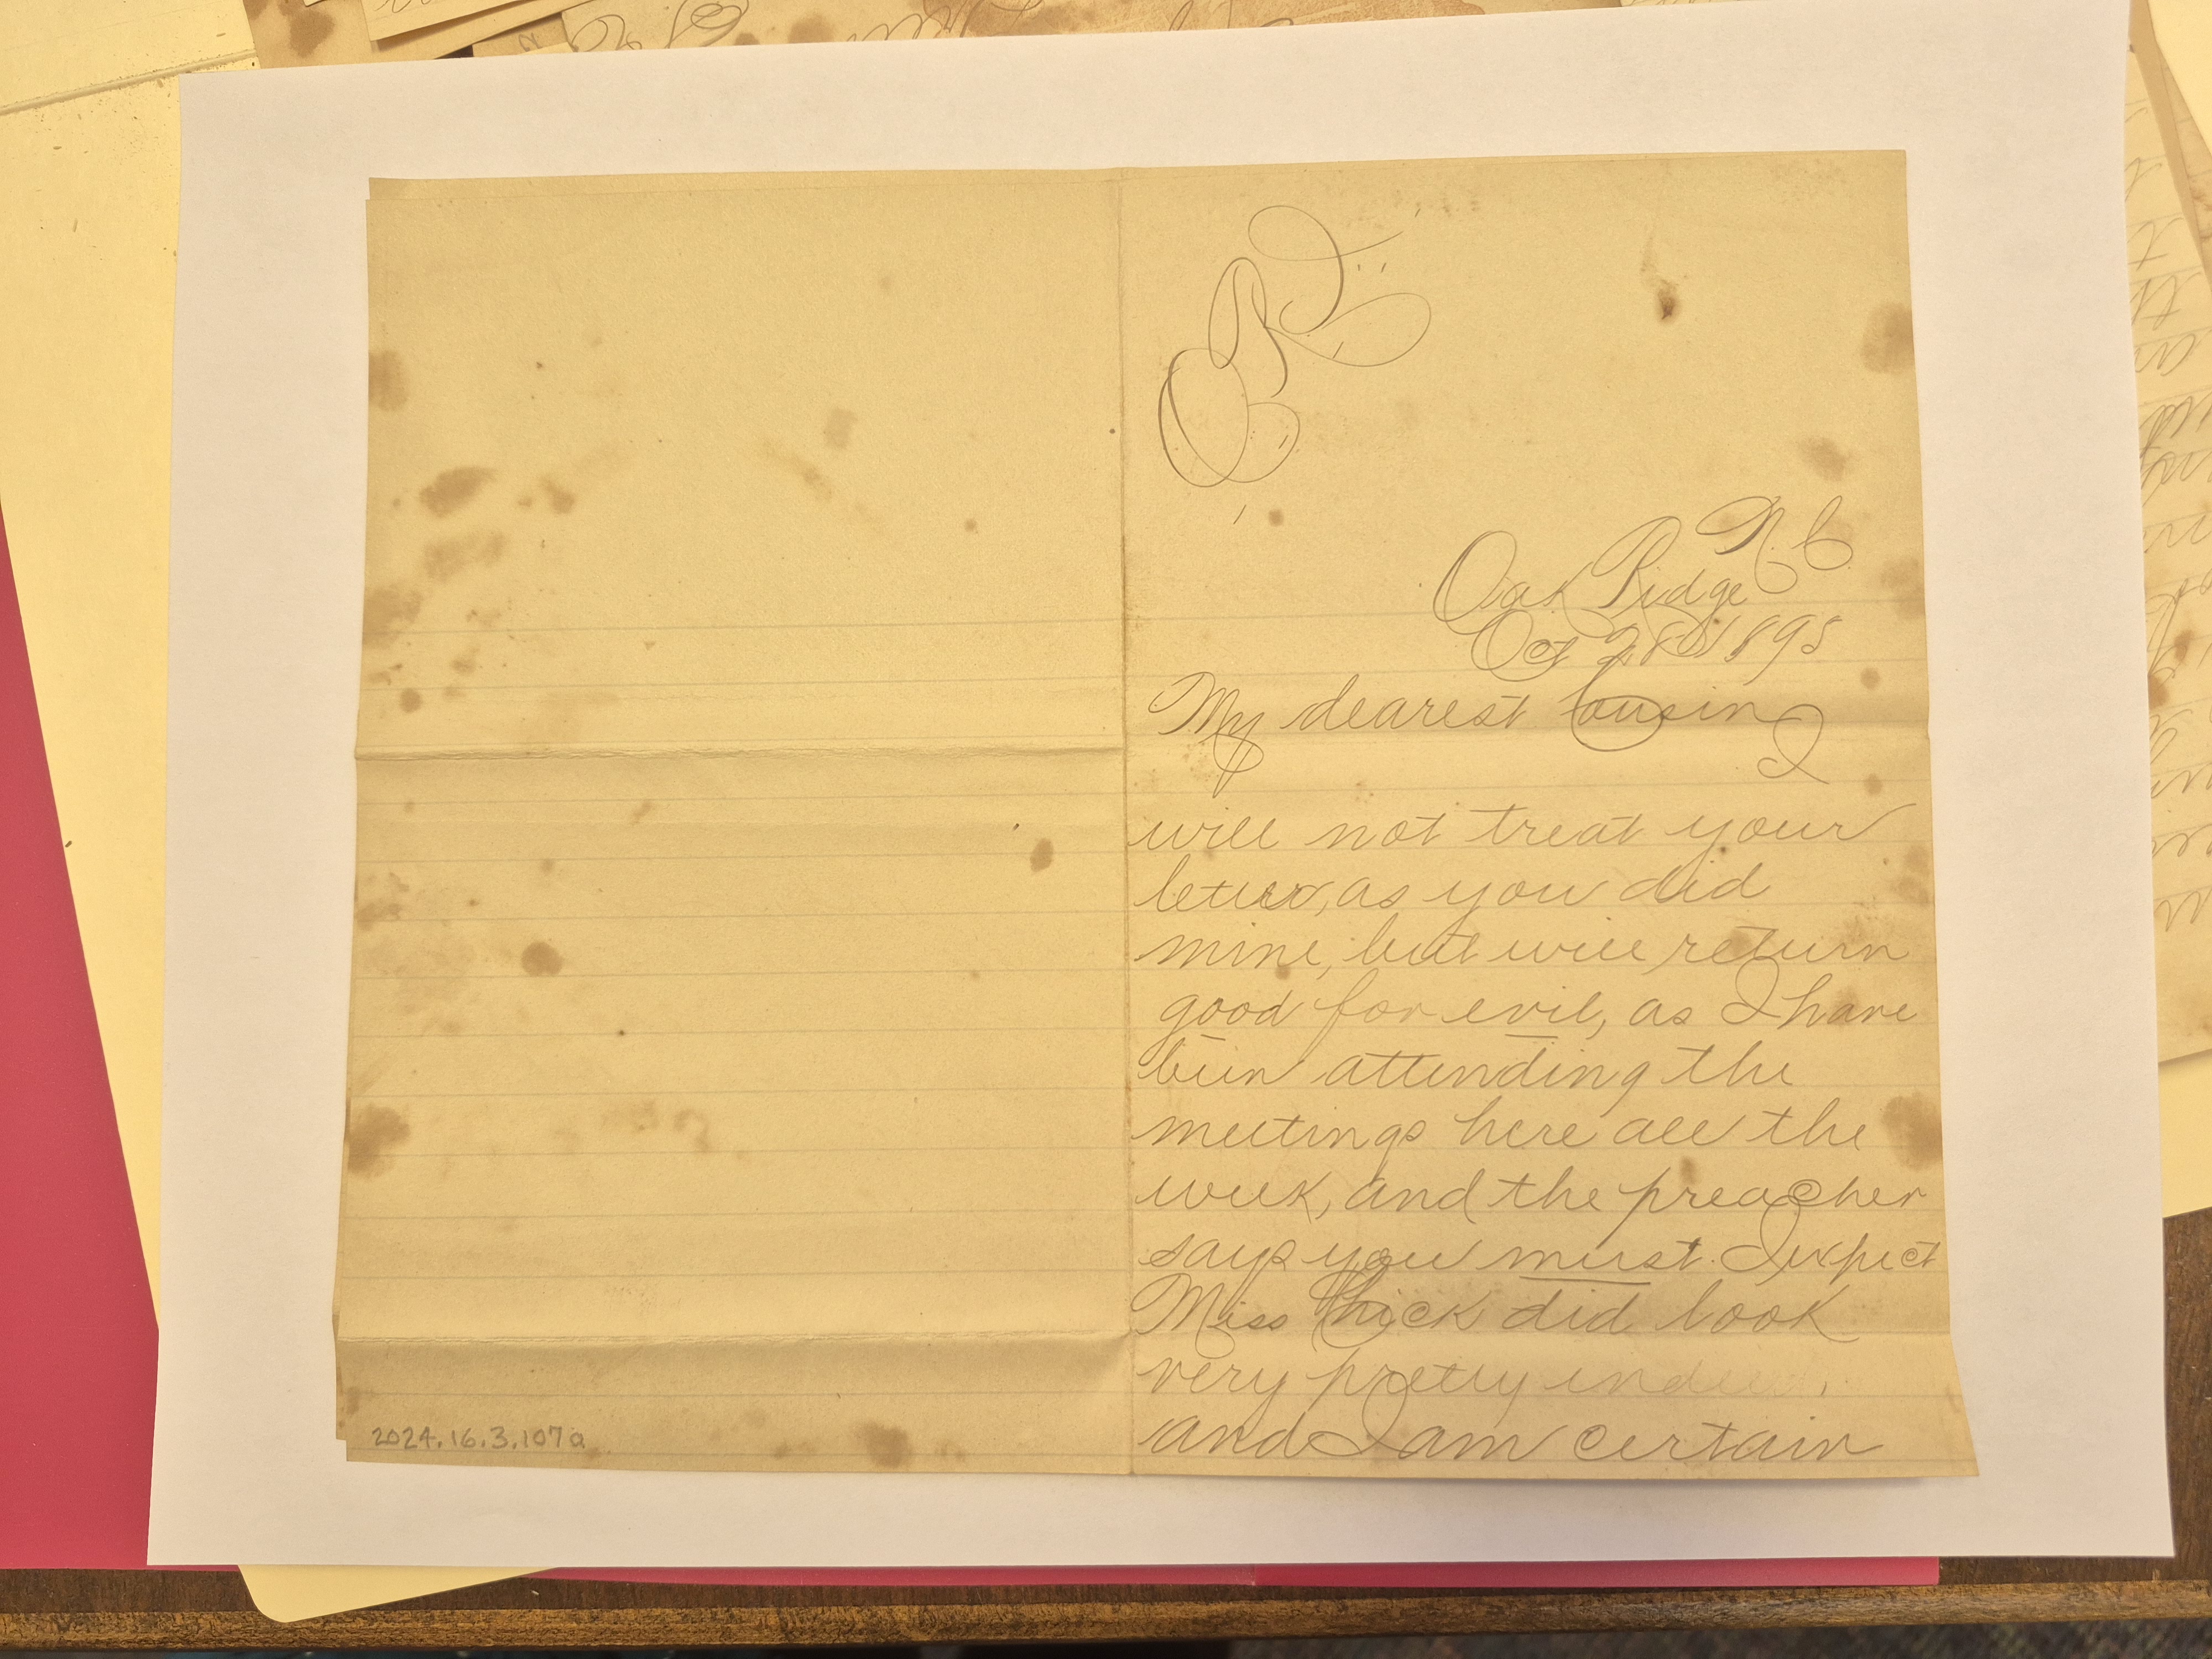 O R I
Oak Ridge N. C
Oct 28 1895
My dearest Cousin
I
will not treat your
letter, as you did
mine, but will return
good for evil, as I have
been attending the
meetings here all the
week, and the preacher
says you must. I expect
Miss Chick did look
very pretty indeed,
and I am certain
2024.16.3.107a